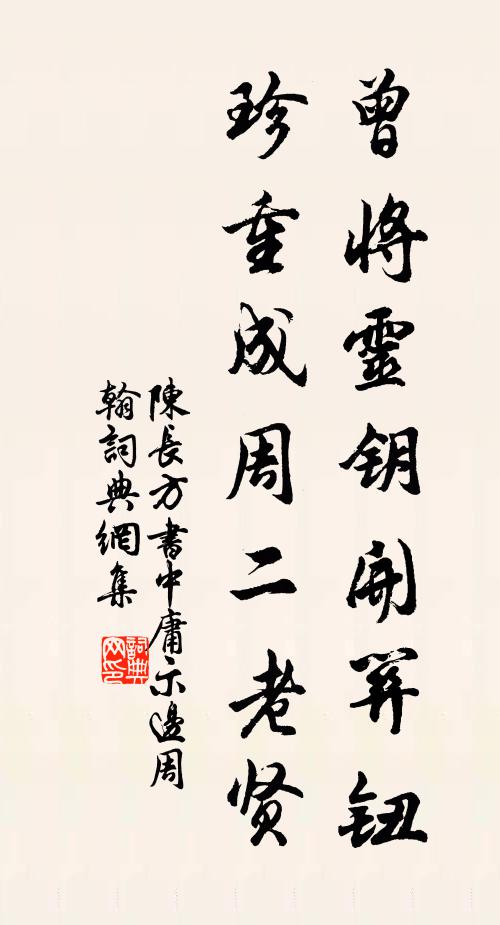 曾將靈钥開關鈕
珍重成周二老贤
陳長方書中庸示邊周
翰詞典網集
詞典网印